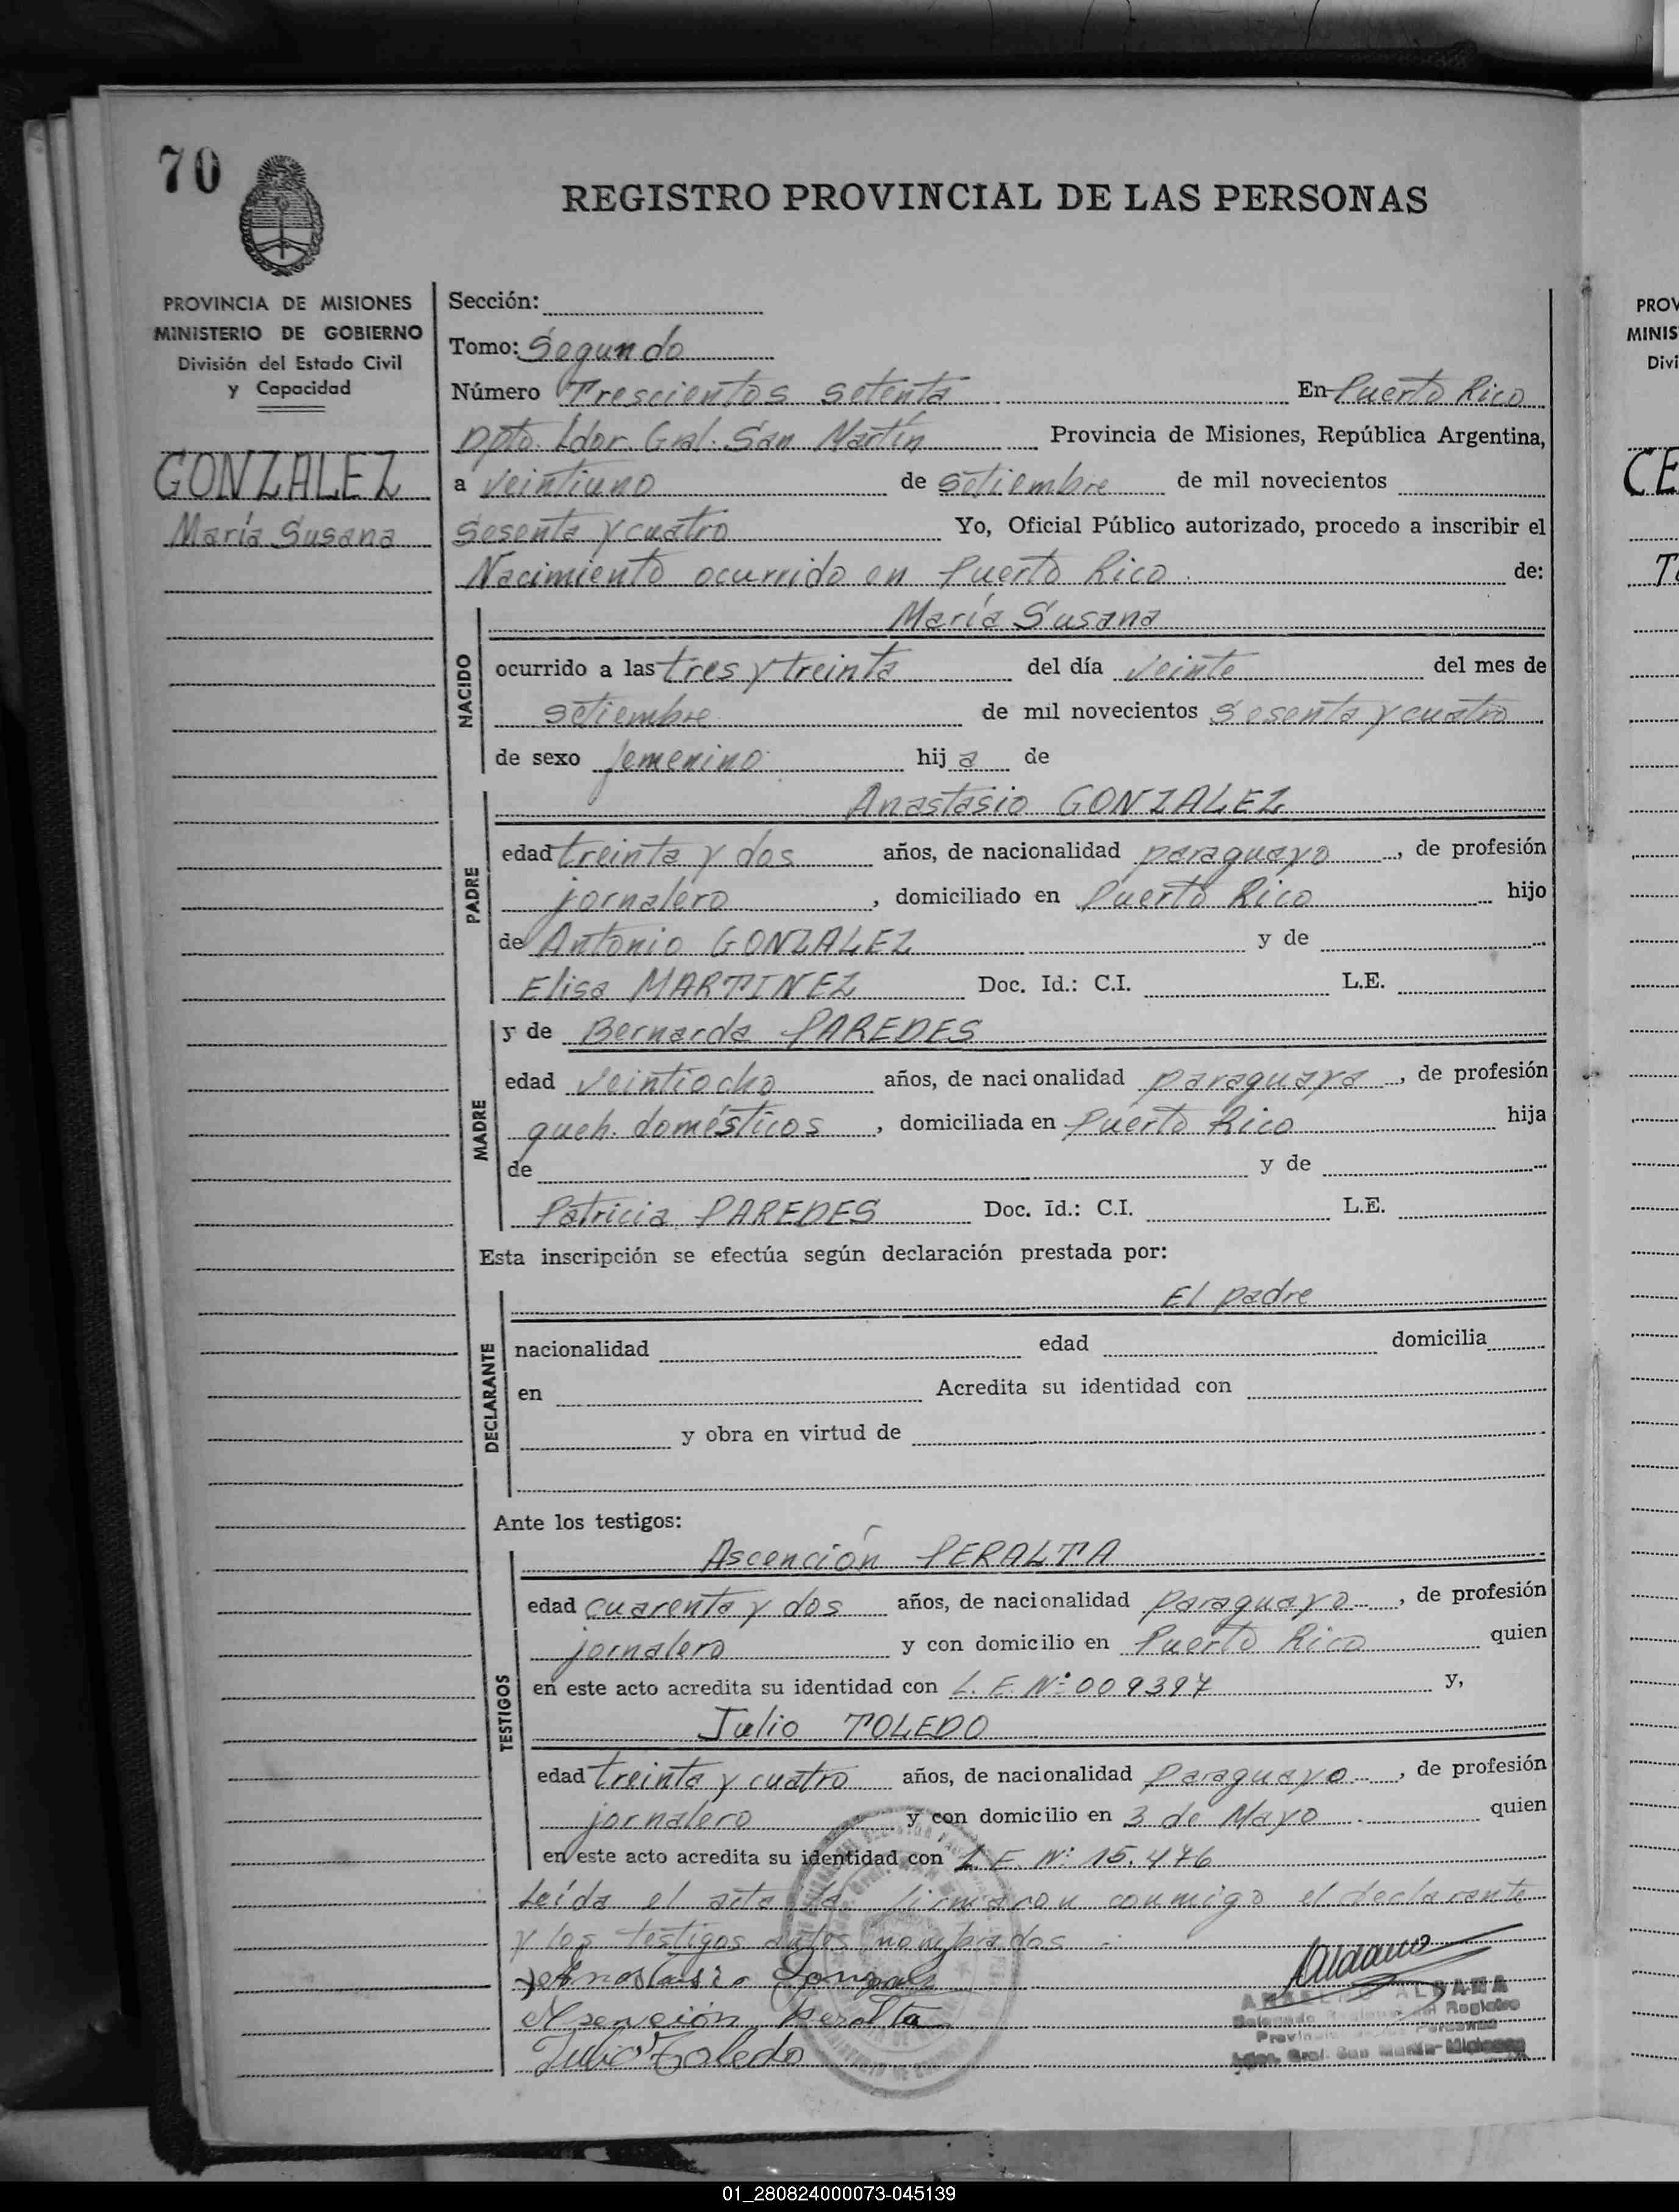 70
REGISTRO PROVINCIAL DE LAS PERSONAS
PROVINCIA DE MISIONES
MINISTERIO DE GOBIERNO
División del Estado Civil
y Capacidad
GONZALEZ
María Susana
Sección:
Tomo: Segundo
Número Trescientos setenta En Puerto Rico
Dpto. Ldor. Gral. San Martín Provincia de Misiones, República Argentina,
a veintiuno de setiembre de mil novecientos
sesenta y cuatro Yo, Oficial Público autorizado, procedo a inscribir el
Nacimiento ocurrido en Puerto Rico de:
NACIDO
María Susana
ocurrido a las tres y treinta del día veinte del mes de
setiembre de mil novecientos sesenta y cuatro
de sexo femenino hij a de
PADRE
Anastasio GONZALEZ
edad treinta y dos años, de nacionalidad paraguayo, de profesión
jornalero, domiciliado en Puerto Rico hijo
de Antonio GONZALEZ y de
Elisa MARTINEZ Doc. Id.: C.I. L.E.
MADRE
y de Bernarda PAREDES
edad veintiocho años, de nacionalidad paraguaya, de profesión
queh. domésticos, domiciliada en Puerto Rico hija
de y de
Patricia PAREDES Doc. Id.: C.I. L.E.
Esta inscripción se efectúa según declaración prestada por:
DECLARANTE
El padre
nacionalidad edad domicilia
en Acredita su identidad con
y obra en virtud de
Ante los testigos:
TESTIGOS
Ascención PERALTA
edad cuarenta y dos años, de nacionalidad paraguayo, de profesión
jornalero y con domicilio en Puerto Rico quien
en este acto acredita su identidad con L.E. Nº 009397 y,
Julio TOLEDO
edad treinta y cuatro años, de nacionalidad paraguayo, de profesión
jornalero y con domicilio en 3 de Mayo quien
en este acto acredita su identidad con L.E. Nº 15.476
Leída el acta la firmaron conmigo el declarante
y los testigos antes nombrados
Anastasio
Peralta
Julio Toledo
ALDANA
Registro
Ldor. Gral. San Martín - Misiones
PROV
MINIS
Divi
CE
01_280824000073-045139